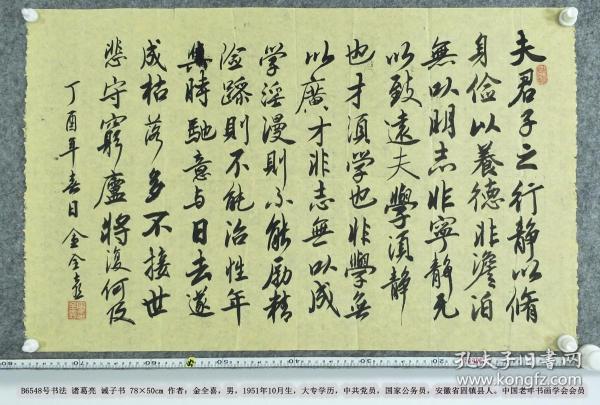 夫君子之行静以脩
身俭以養德非澹泊
無以明志非寧静无
以致遠夫學湏静
也才湏学也非學無
以廣才非志無以成
学淫漫则不能励精
险躁则不能治性年
與時馳意与日去遂
成枯落多不接世
悲守窮廬将復何及
丁酉年春日金全喜
B6548号书法 诸葛亮 诫子书 78×50cm 作者，金全喜，男，1951年10月生，大专学历，中共党员，国家公务员，安徽省固镇县人。中国老年书画学会会员
孔夫子旧书网